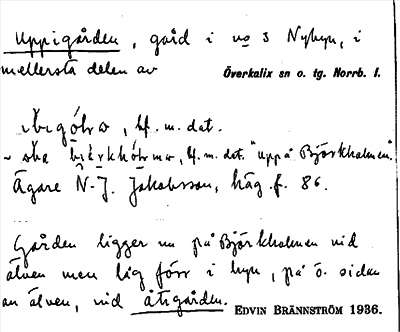 Uppigården, gård i no 3 Nybyn, i
mellersta delen av Överkalix sn o. tg. Norrb. l.
bf. m. dat.
bf. m. dat. "uppå Björkholmen".
Ägare N. J. Jakobsson, häg. f. 86.
Gården ligger nu på Björkholmen vid
älven men låg förr i byn, på ö. sidan
av älven, vid åtigården. EDVIN BRÄNNSTRÖM 1936.